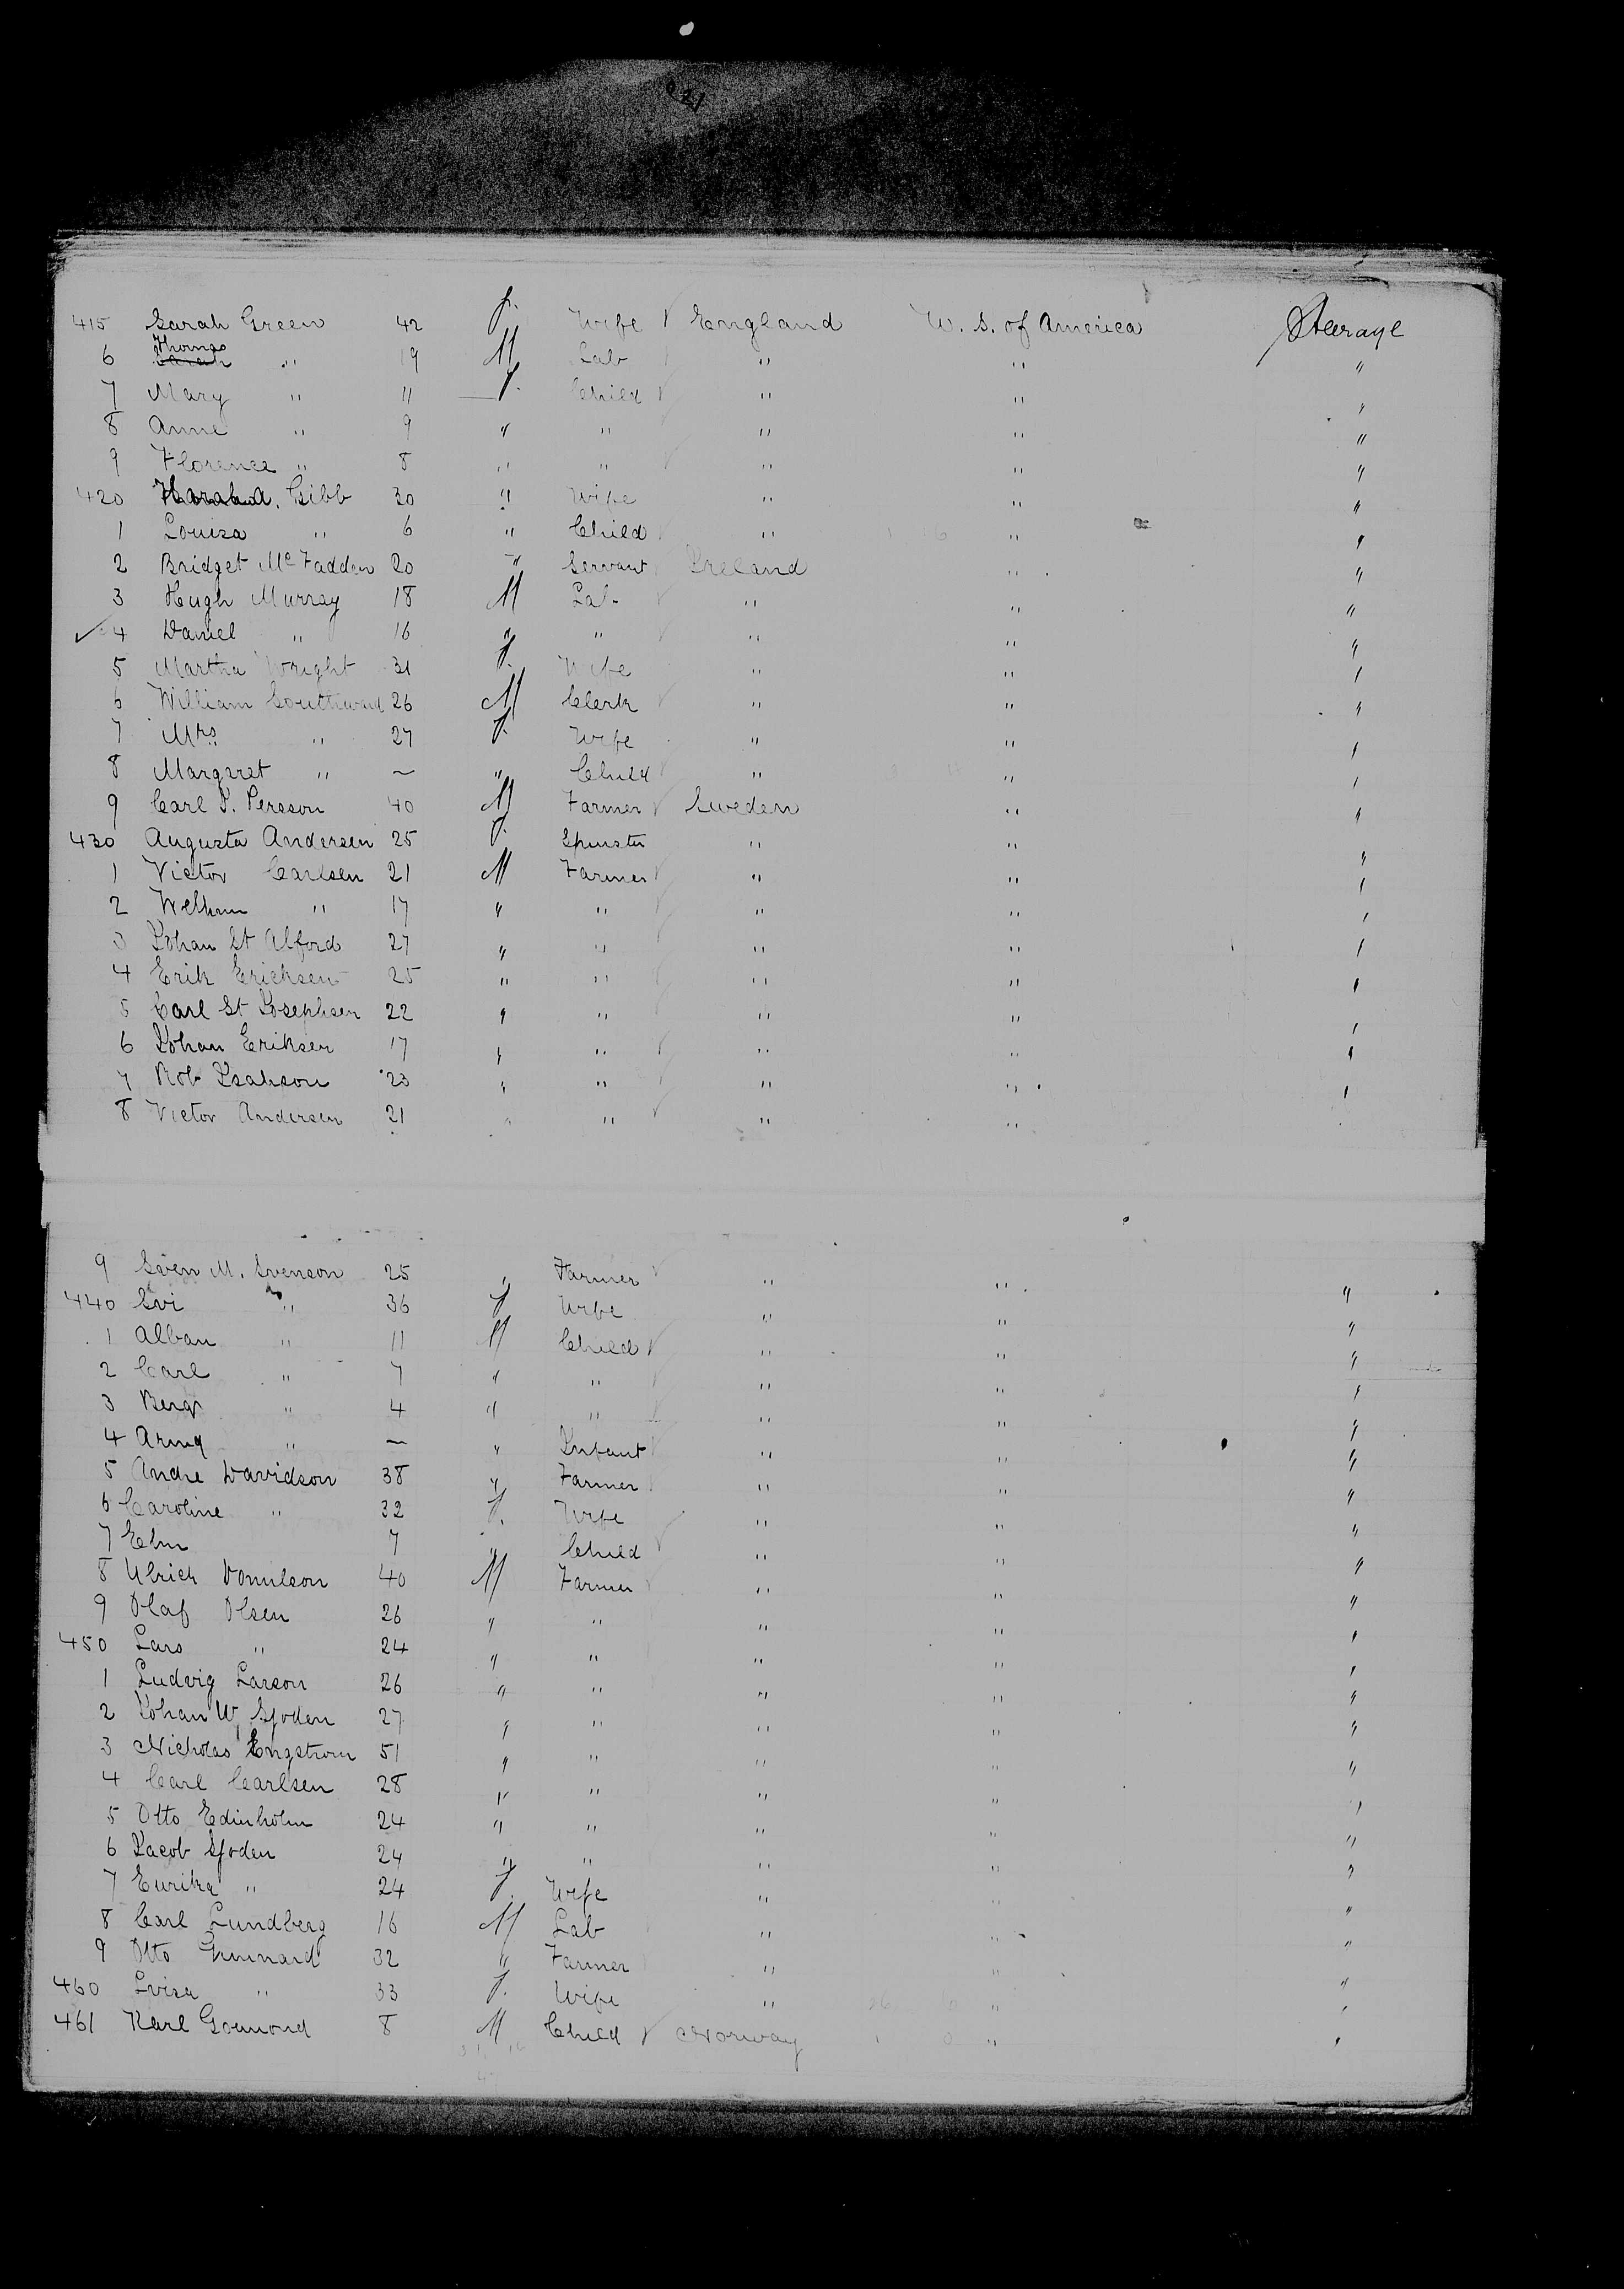 415 Sarah Green 42 f. Wife England U. S. of America Steerage
6 Thomas " 19 M Lab " " "
7 Mary " 11 f. Child " " "
8 Anne " 9 " " " " "
9 Florence " 8 " " " " "
420 Gibb 30 " Wife " " "
1 Louisa " 6 " Child " " "
2 Bridget McFadden 20 " Servant Ireland " "
3 Hugh Murray 18 M Lab " " "
4 Daniel " 16 " " " " "
5 Martha Wright 31 f. Wife " " "
6 William Southward 26 M Clerk " " "
7 Mrs " 27 f. Wife " " "
8 Margaret " ~ " Child " " "
9 Carl P. Persson 40 M Farmer Sweden " "
430 Augusta Andersen 25 f. Spinster " " "
1 Victor Carlsen 21 M Farmer " " "
2 Welham " 17 " " " " "
3 Johan St Alford 27 " " " " "
4 Erik Ericksen 25 " " " " "
5 Carl St Josephsen 22 " " " " "
6 Johan Eriksen 17 " " " " "
7 Rob Isakson 23 " " " " "
8 Victor Andersen 21 " " " "
9 Sven M. Svenson 25 " Farmer " " "
440 Svi " 36 f Wife " " "
1 Alban " 11 M Child " " "
2 Carl " 7 " " " " "
3 Beng " 4 " " " " "
4 " ~ " Infant " " "
5 Andre Davidson 38 " Farmer " " "
6 Caroline " 32 f. Wife " " "
7 Elm 7 " Child " " "
8 Ulrick 40 M Farmer " " "
9 Olaf Olsen 26 " " " " "
450 Lars " 24 " " " " "
1 Ludvig Larson 26 " " " " "
2 Johan W. Sjoden 27 " " " " "
3 Nicholas Engstrom 51 " " " " "
4 Carl Carlsen 28 " " " " "
5 Otto Edinholm 24 " " " " "
6 Jacob Sjoden 24 " " " " "
7 Eurika " 24 f. Wife " " "
8 Carl Lundberg 16 M Lab " " "
9 Otto Gunnard 32 " Farmer " " "
460 Lvisa " 33 f. Wife " " "
461 Karl Gomond 8 M Child Norway " "